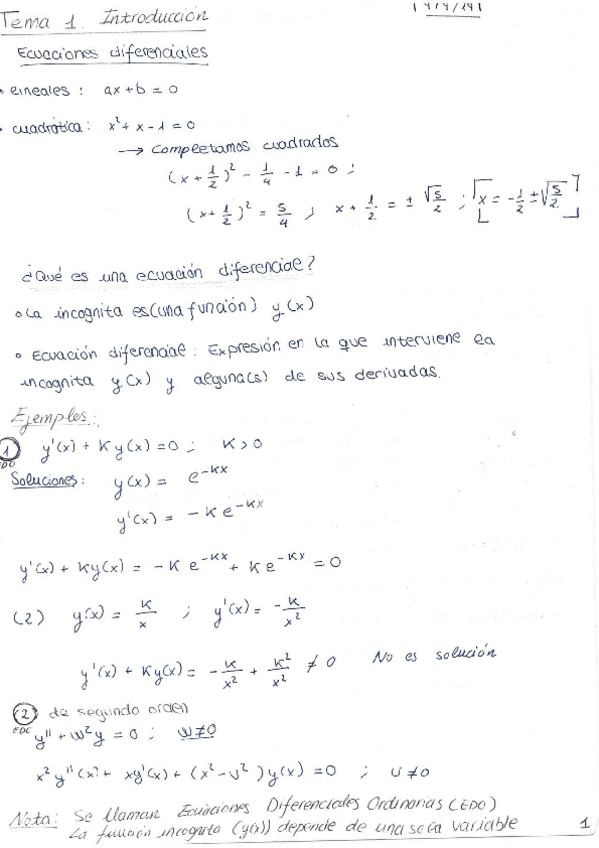 Tema 1. Introducción
Ecuaciones diferenciales
• Lineales: ax + b = 0
• cuadrática: x² + x - 1 = 0
→ Completamos cuadrados
(x + 1/2)² - 1/4 - 1 = 0 ;
(x + 1/2)² = 5/4 ; x + 1/2 = ± √5/2 ; [x = -1/2 ± √5/2]
¿Qué es una ecuación diferencial?
• La incognita es (una función) y(x)
• Ecuación diferencial: Expresión en la que interviene la
incognita y(x) y alguna(s) de sus derivadas.
Ejemplos:
① y'(x) + K y(x) = 0 ; K > 0
EDO
Soluciones: y(x) = e^(-Kx)
y'(x) = -K e^(-Kx)
y'(x) + Ky(x) = -K e^(-Kx) + K e^(-Kx) = 0
(2) y(x) = K/x ; y'(x) = -K/x²
y'(x) + Ky(x) = -K/x² + K²/x² ≠ 0 No es solución
② de segundo orden
EDO y'' + w²y = 0 ; w≠0
x² y''(x) + xy'(x) + (x² - v²) y(x) = 0 ; v ≠ 0
Nota: Se llaman Ecuaciones Diferenciales Ordinarias (EDO)
La función incognita (y(x)) depende de una sola variable
1